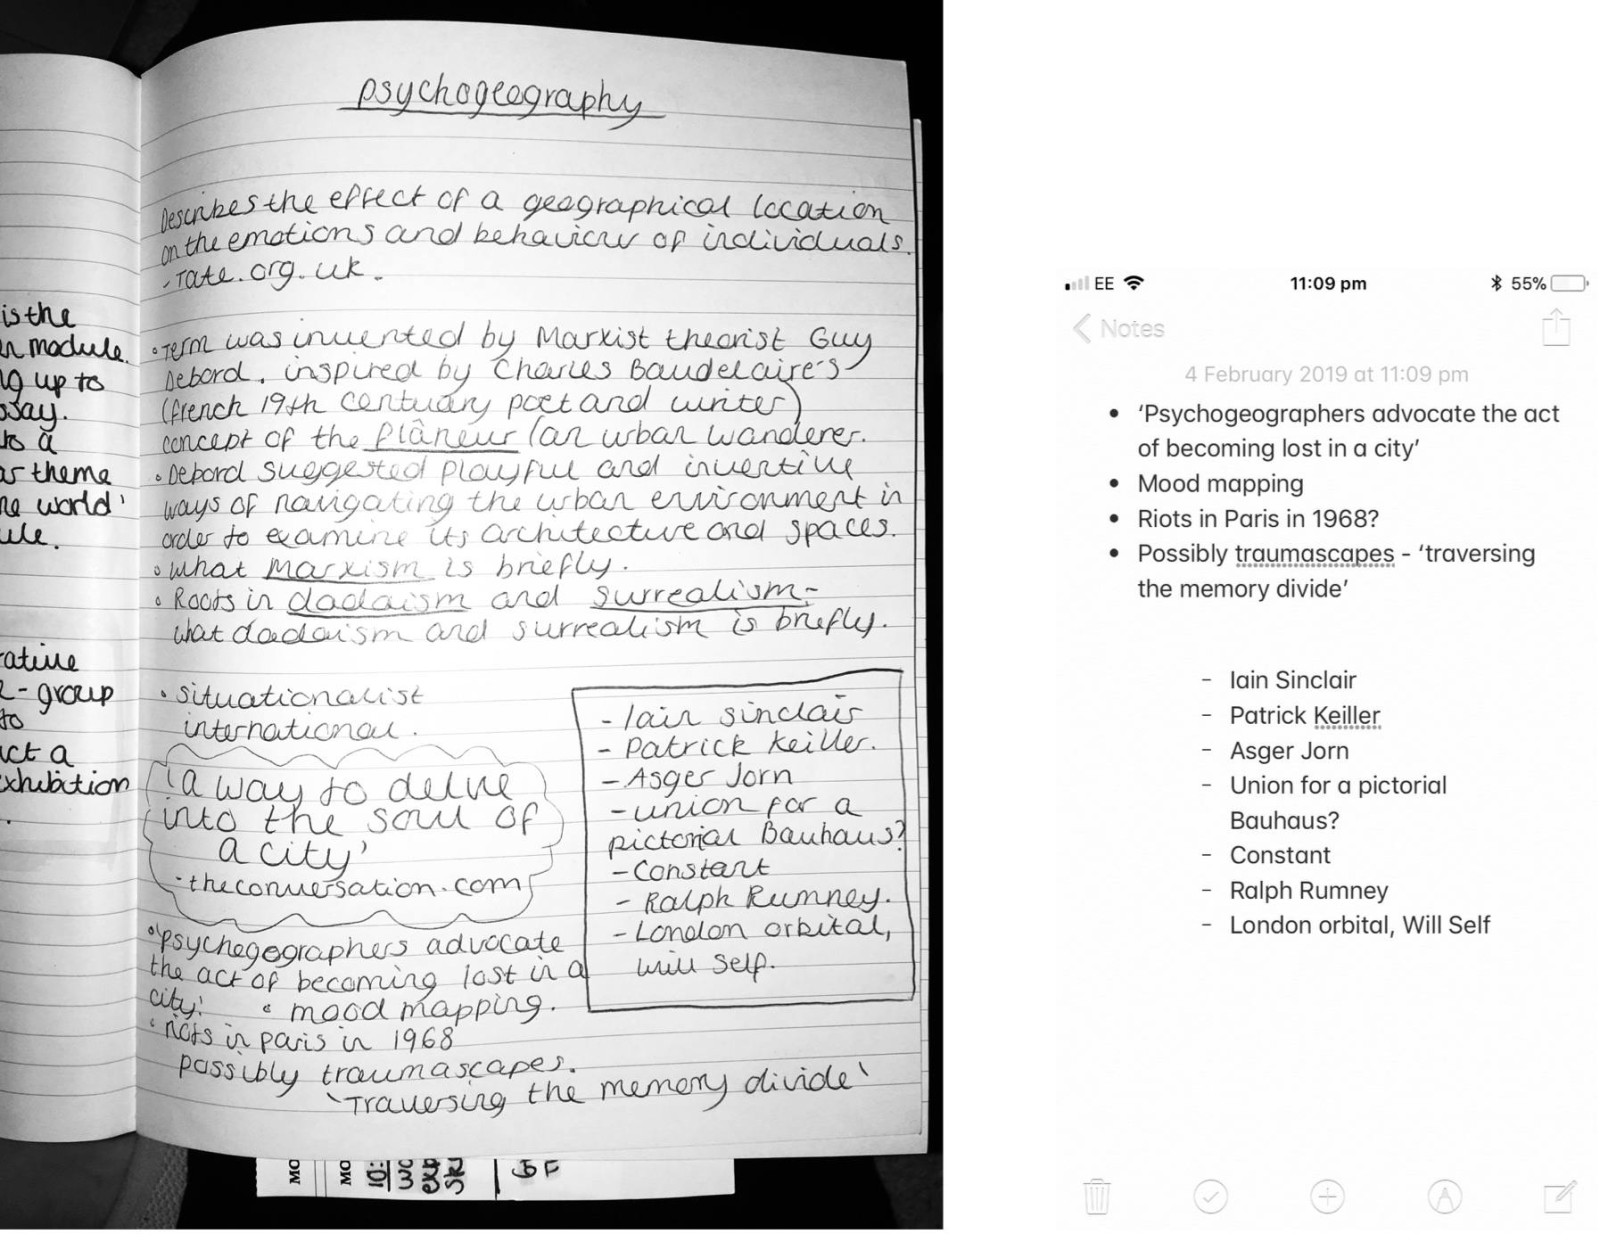 psychogeography
Describes the effect of a geographical location
on the emotions and behaviour of individuals.
- Tate.org.uk -
is the
module.
g up to
ssay.
to a
as theme
he world'
ule.
rative
- group
to
act a
exhibition
.
◦ Term was invented by Marxist theorist Guy
Debord, inspired by Charles Baudelaire's
(french 19th centuary poet and writer)
concept of the flâneur (an urban wanderer.
◦ Debord suggested playful and inventive
ways of navigating the urban environment in
order to examine its architecture and spaces.
◦ what Marxism is briefly.
◦ Roots in dadaism and surrealism -
what dadaism and surrealism is briefly.
• situationalist
international.
'a way to delve
into the soul of
a city'
- theconversation.com
◦ 'psychegographers advocate
the act of becoming lost in a
city'. ◦ mood mapping.
◦ riots in paris in 1968
possibly traumascapes.
'Traversing the memory divide'
- Iain Sinclair
- Patrick Keiller.
- Asger Jorn
- union for a
pictorial Bauhaus?
- Constant
- Ralph Rumney.
- London orbital,
will self.
MO
MO
10:
EE 11:09 pm 55%
Notes
4 February 2019 at 11:09 pm
• 'Psychogeographers advocate the act
of becoming lost in a city'
• Mood mapping
• Riots in Paris in 1968?
• Possibly traumascapes - 'traversing
the memory divide'
- Iain Sinclair
- Patrick Keiller
- Asger Jorn
- Union for a pictorial
Bauhaus?
- Constant
- Ralph Rumney
- London orbital, Will Self